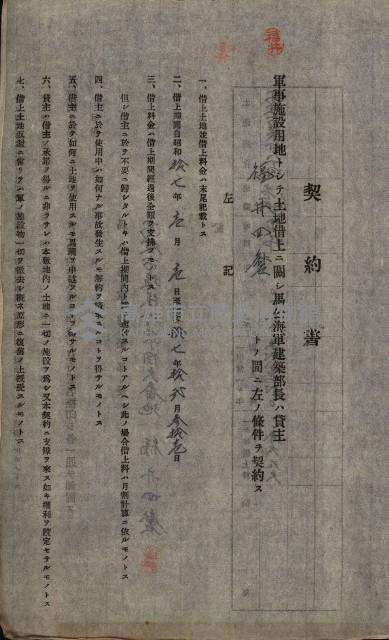 契約書
軍事施設用地トシテ土地借上ニ關シ馬公海軍建築部長ハ貸主
トノ間ニ左ノ條件ヲ契約ス
左記
一、借上土地並借上料金ハ末尾記載トス
二、借上期間自昭和拾七年壱月壱日至昭和拾七年拾貳月參拾壱日
三、借上料金ハ借上期間經過後全額ヲ支拂フモノトス
但シ借主ニ於テ不要ニ歸シタルトキハ借上期間内ト雖モ返還スルコトアルヘシ此ノ場合借上料ハ月割計算ニ依ルモノトス
四、借主ニ於テ使用中ハ如何ナル事故發生スルモ解約ヲ爲スコトヲ得サルモノトス
五、借主ニ於テ如何ニ土地ヲ使用スルモ異議ヲ申述フルコトヲ得サルモノトス
六、貸主ハ借主ノ承諾ヲ得ルニ非ラサレハ本敷地内ノ土地ニ一切ノ施設ヲ爲シ又本契約ニ支障ヲ來ス如キ權利ヲ設定セサルモノトス
七、借上土地返還ニ當リテハ軍ノ施設物一切ヲ撤去シ概ネ原形ニ復舊ノ上授受スルモノトス